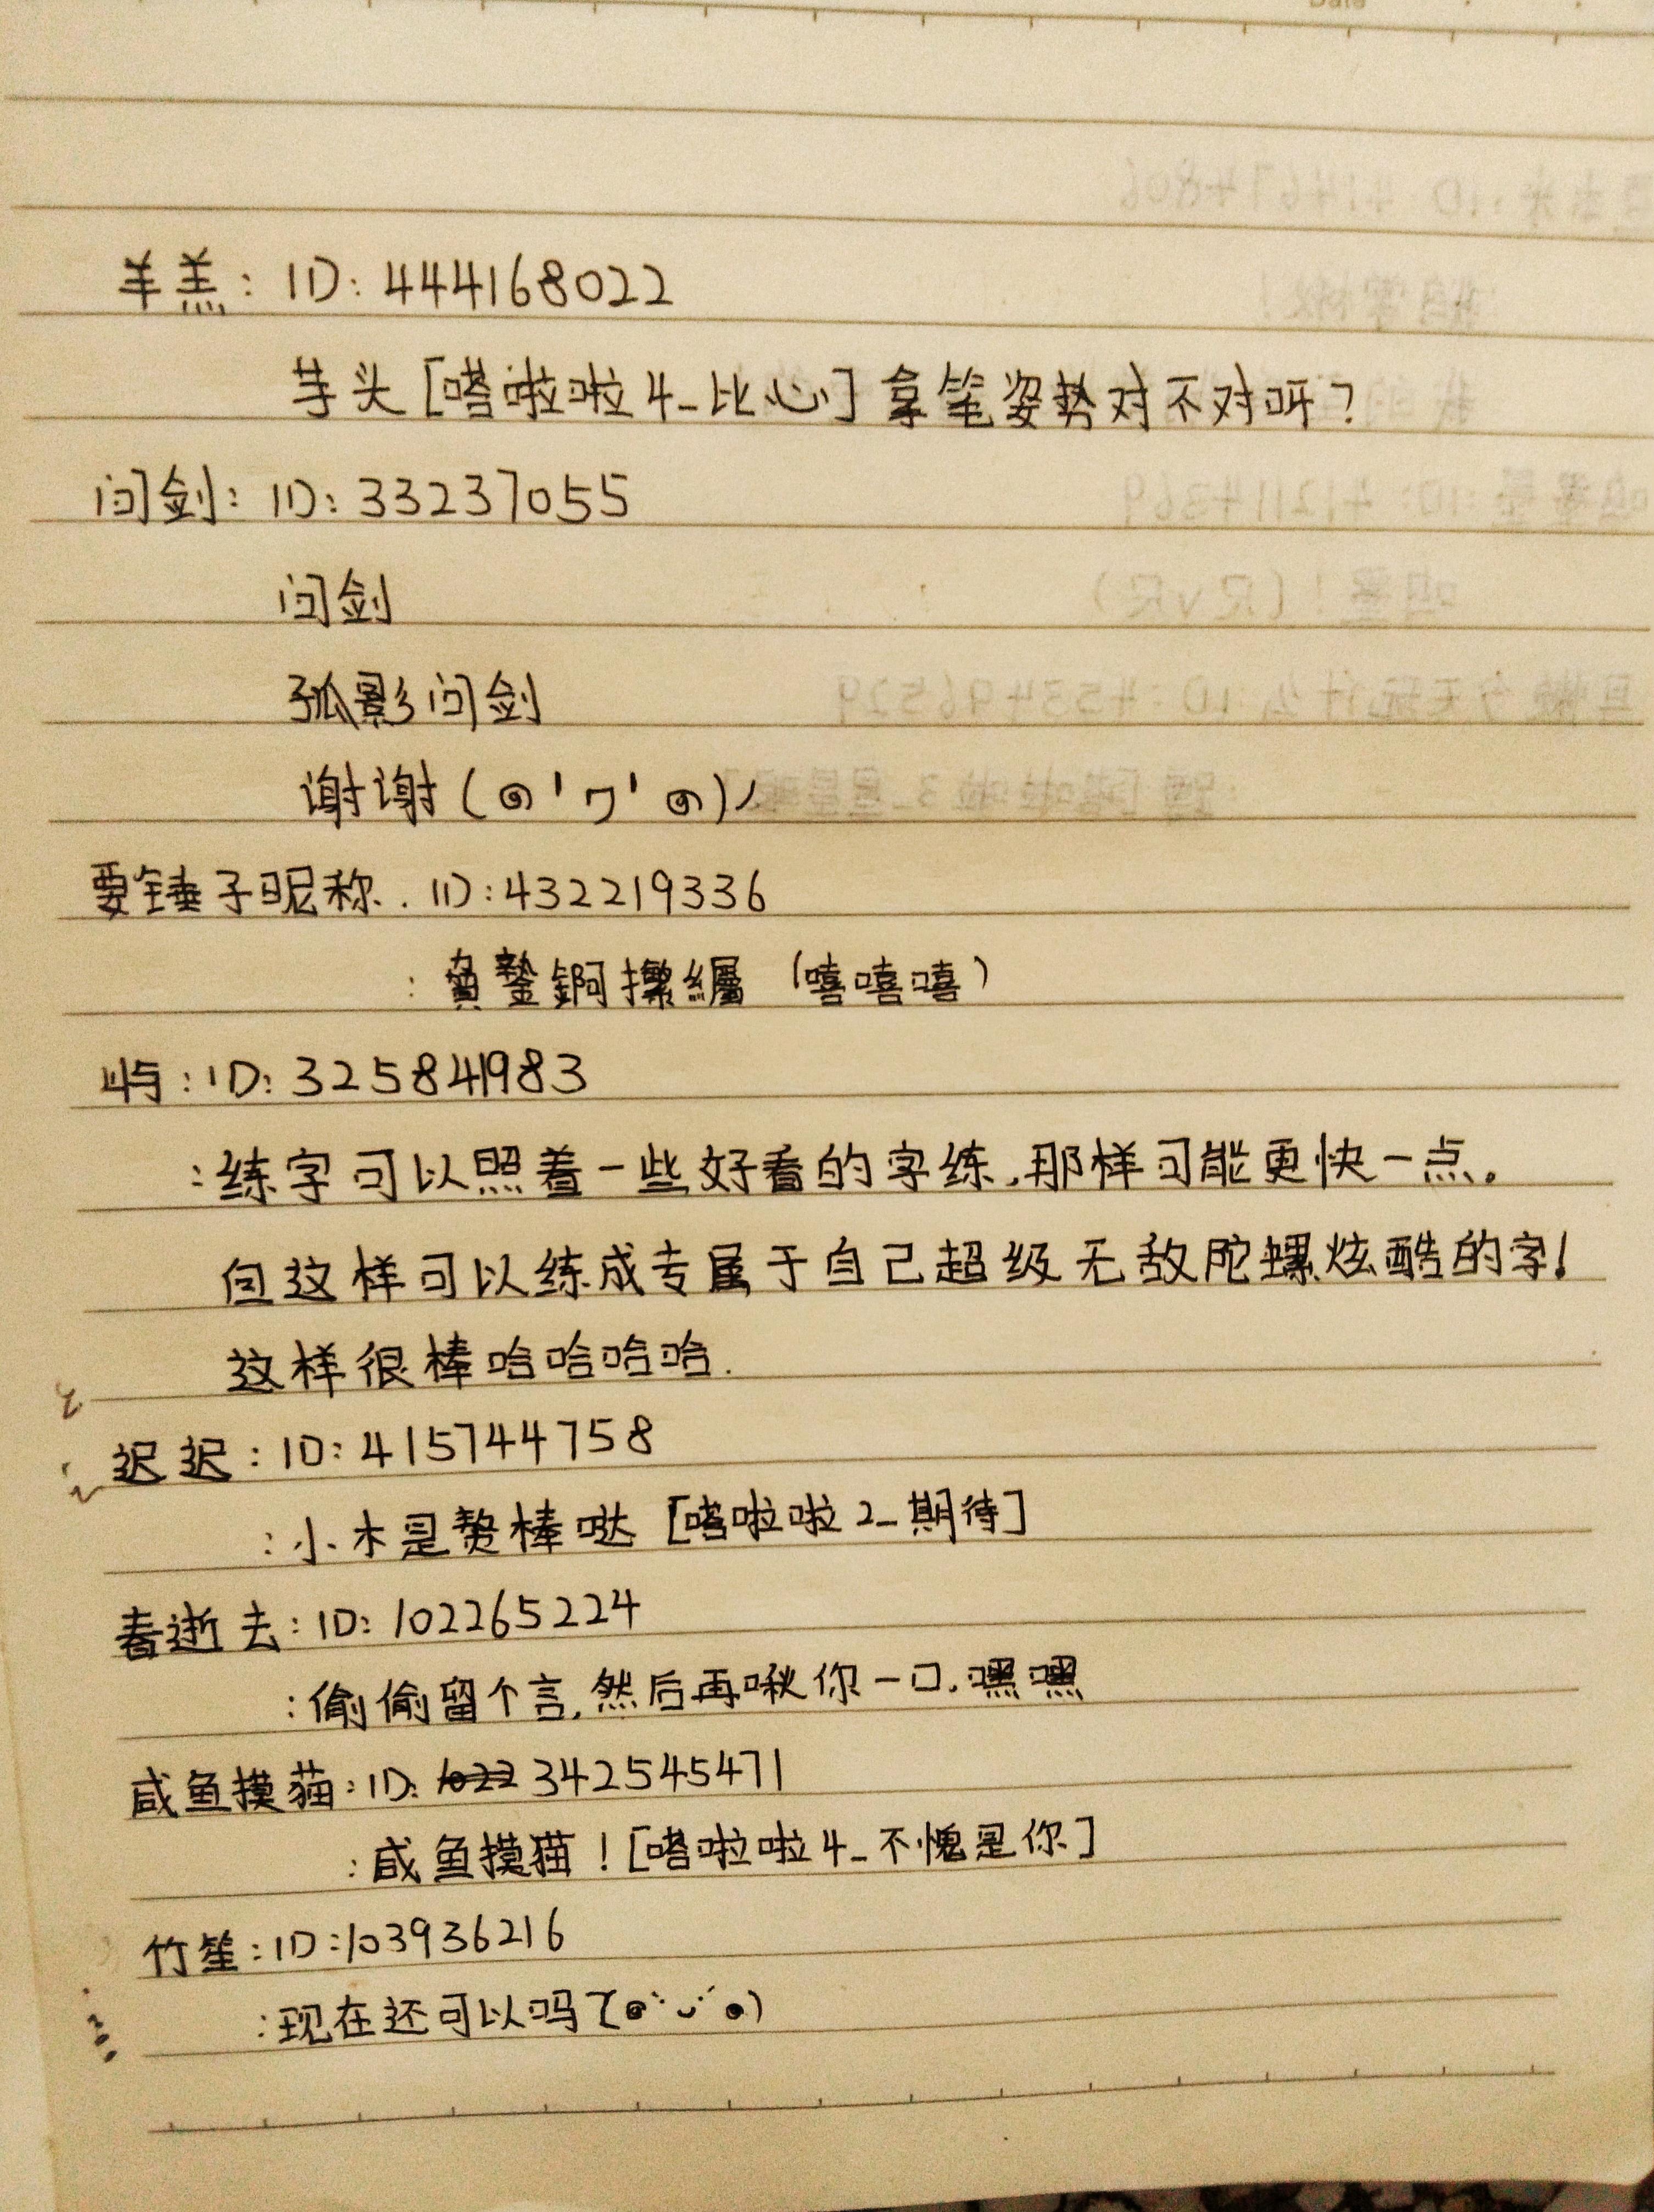 羊羔：ID：444168022
芋头［嗒啦啦4_比心］拿笔姿势对不对呀？
问剑：ID：33237055
问剑
孤影问剑
谢谢(๑'ㄱ'๑)ﾉ
要锤子昵称．ID：432219336
：鏨錒攥纚（嘻嘻嘻）
屿：ID：325841983
：练字可以照着一些好看的字练，那样可能更快一点。
但这样可以练成专属于自己超级无敌陀螺炫酷的字！
这样很棒哈哈哈哈．
迟迟：ID：415744758
：小木是赞棒哒［嗒啦啦2_期待］
春逝去：ID：102265224
：偷偷留个言，然后再啾你一口，嘿嘿
咸鱼摸猫：ID：342545471
：咸鱼摸猫！［嗒啦啦4_不愧是你］
竹笙：ID：103936216
：现在还可以吗